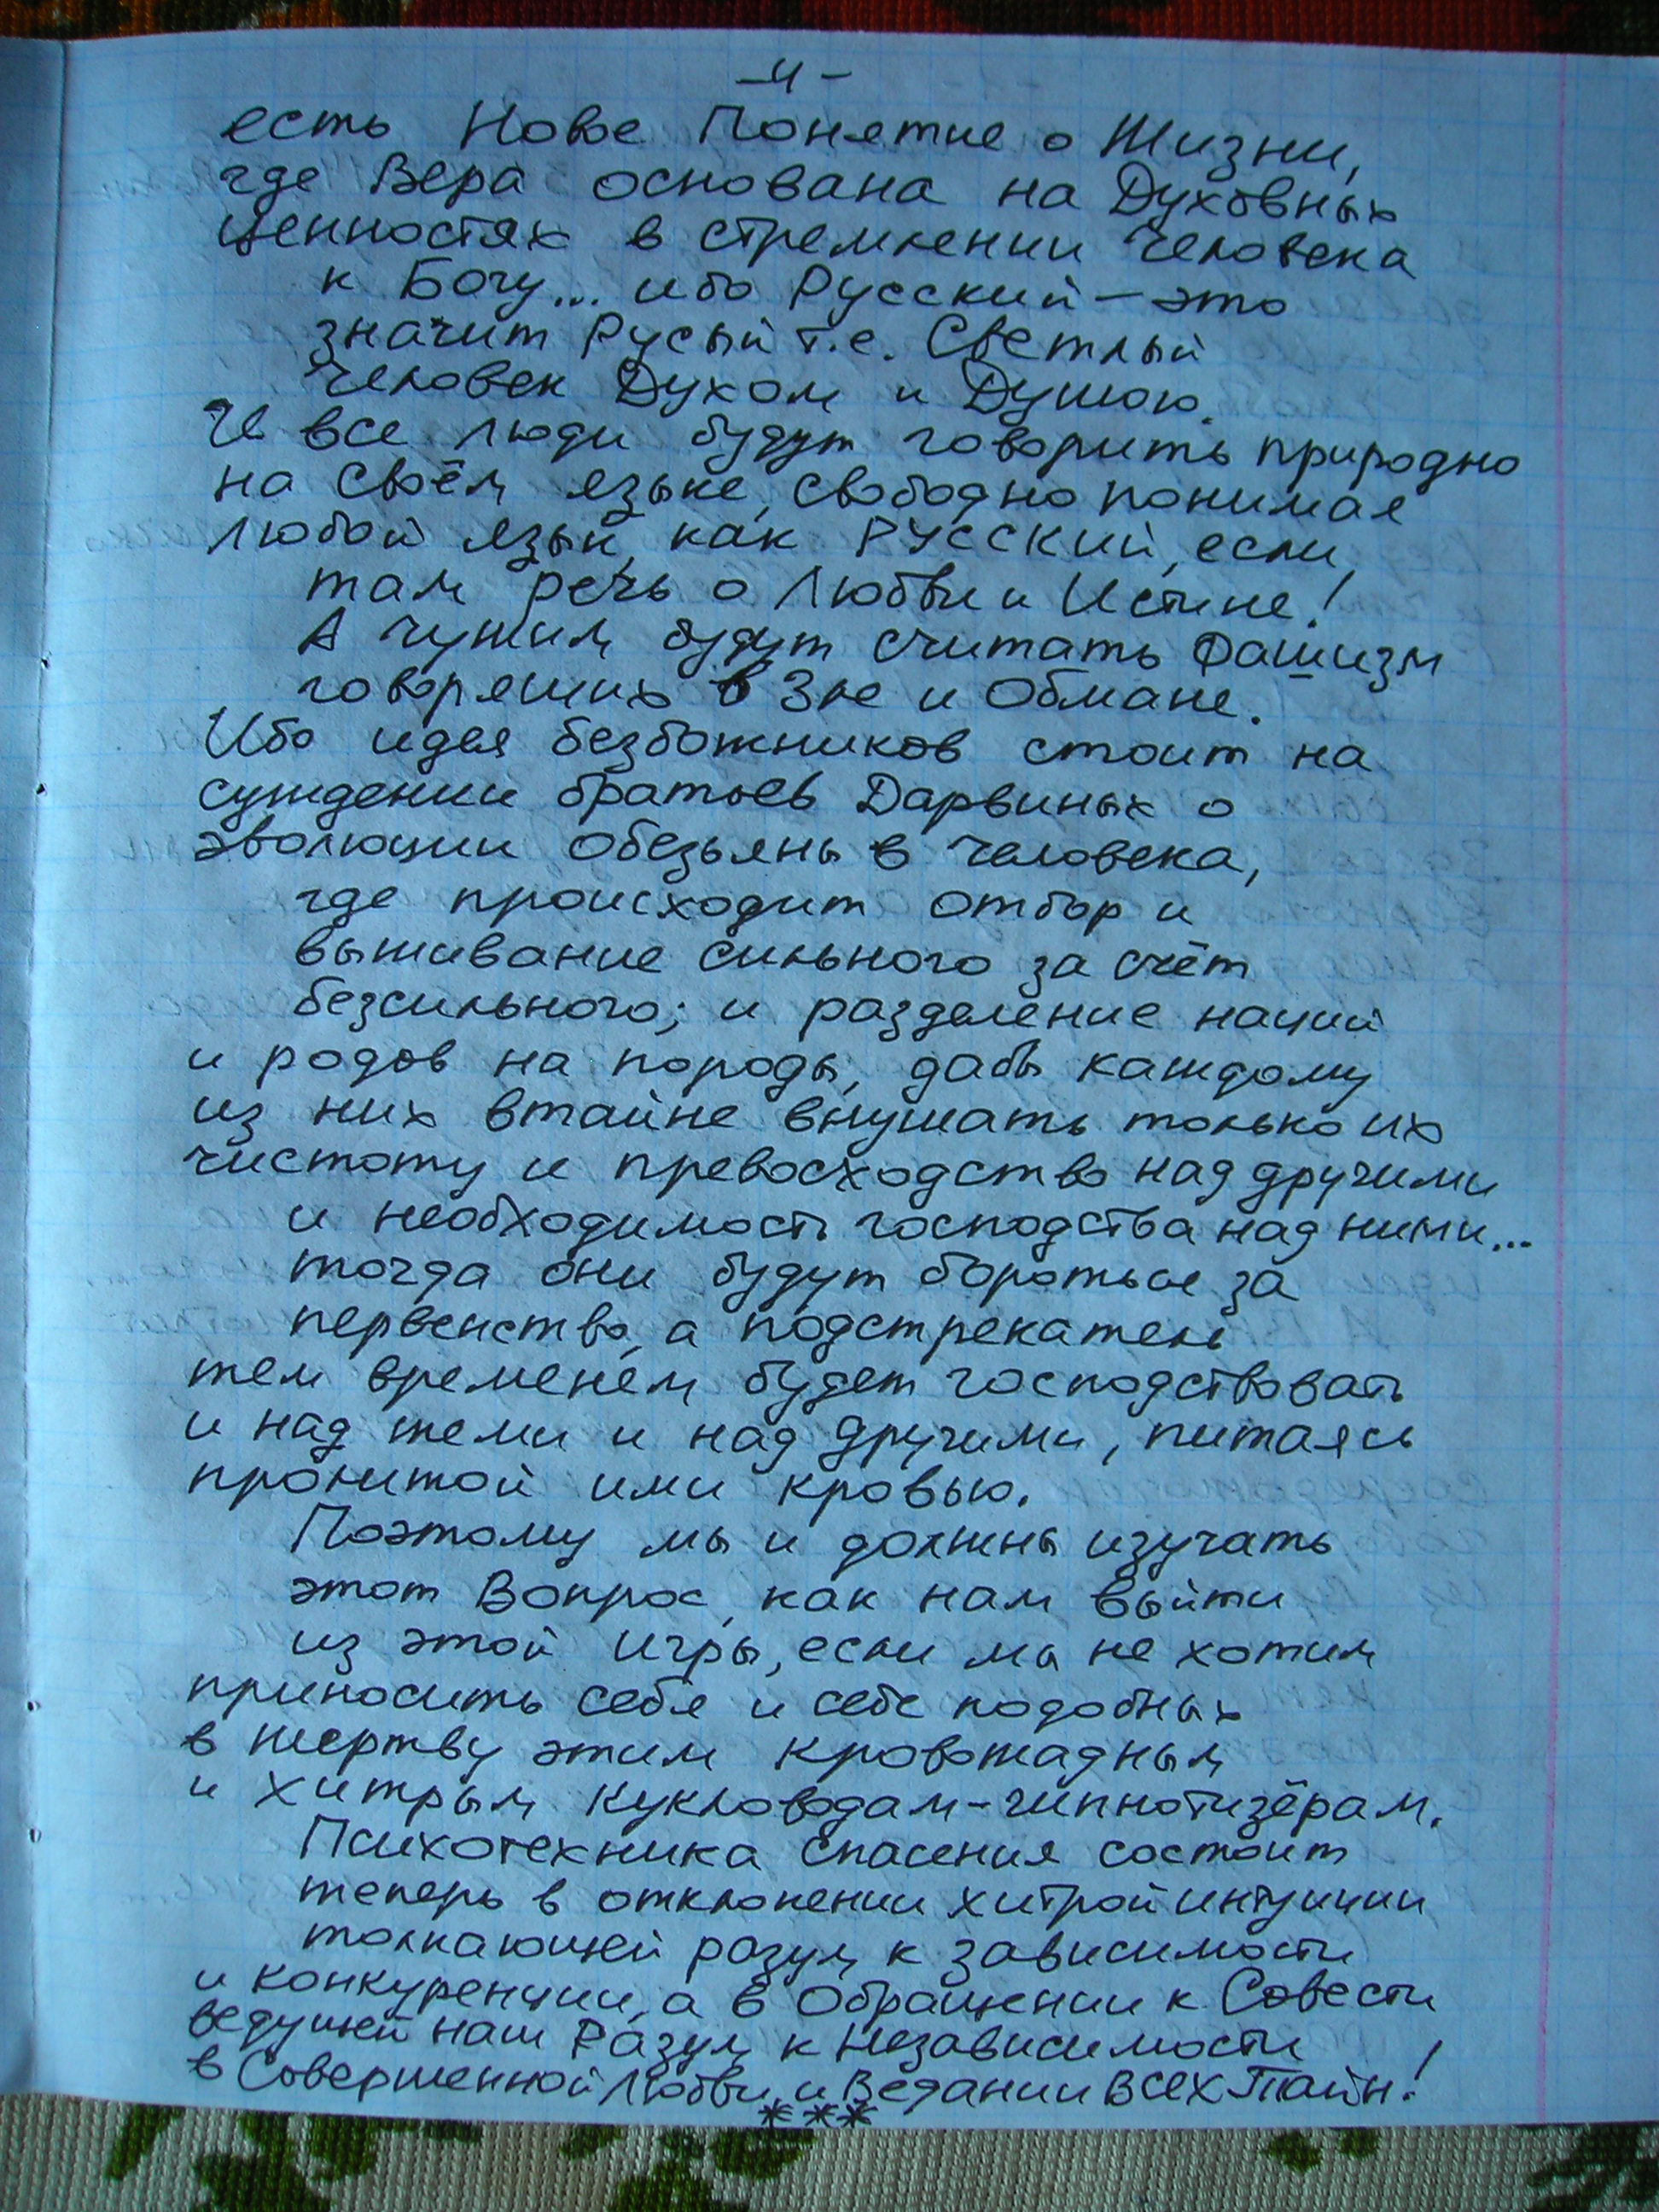 -4-
есть Новое Понятие о Жизни,
где Вера основана на Духовных
ценностях в стремлении Человека
к Богу... ибо Русский - это
значит Русый т.е. Светлый
Человек Духом и Душою.
И все люди будут говорить природно
на своём языке, свободно понимая
любой язык, как РУССКИЙ, если
там речь о Любви и Истине!
А чужим будут считать Фашизм
говорящих в Зле и Обмане.
Ибо идея безбожников стоит на
суждении братьев Дарвиных о
эволюции обезьяны в человека,
где происходит отбор и
выживание сильного за счёт
безсильного; и разделение наций
и родов на породы, дабы каждому
из них втайне внушать только их
чистоту и превосходство над другими
и необходимость господства над ними...
тогда они будут бороться за
первенство, а подстрекатель
тем временем будет господствовать
и над теми и над другими, питаясь
пролитой ими кровью.
Поэтому мы и должны изучать
этот Вопрос, как нам выйти
из этой игры, если мы не хотим
приносить себя и себе подобных
в жертву этим кровожадным
и хитрым кукловодам-гипнотизёрам.
Психотехника спасения состоит
теперь в отклонении хитрой интуиции
толкающей разум к зависимости
и конкуренции, а в Обращении к Совести
ведущей наш Разум к Независимости
в Совершенной Любви и Ведании ВСЕХ Тайн!
***